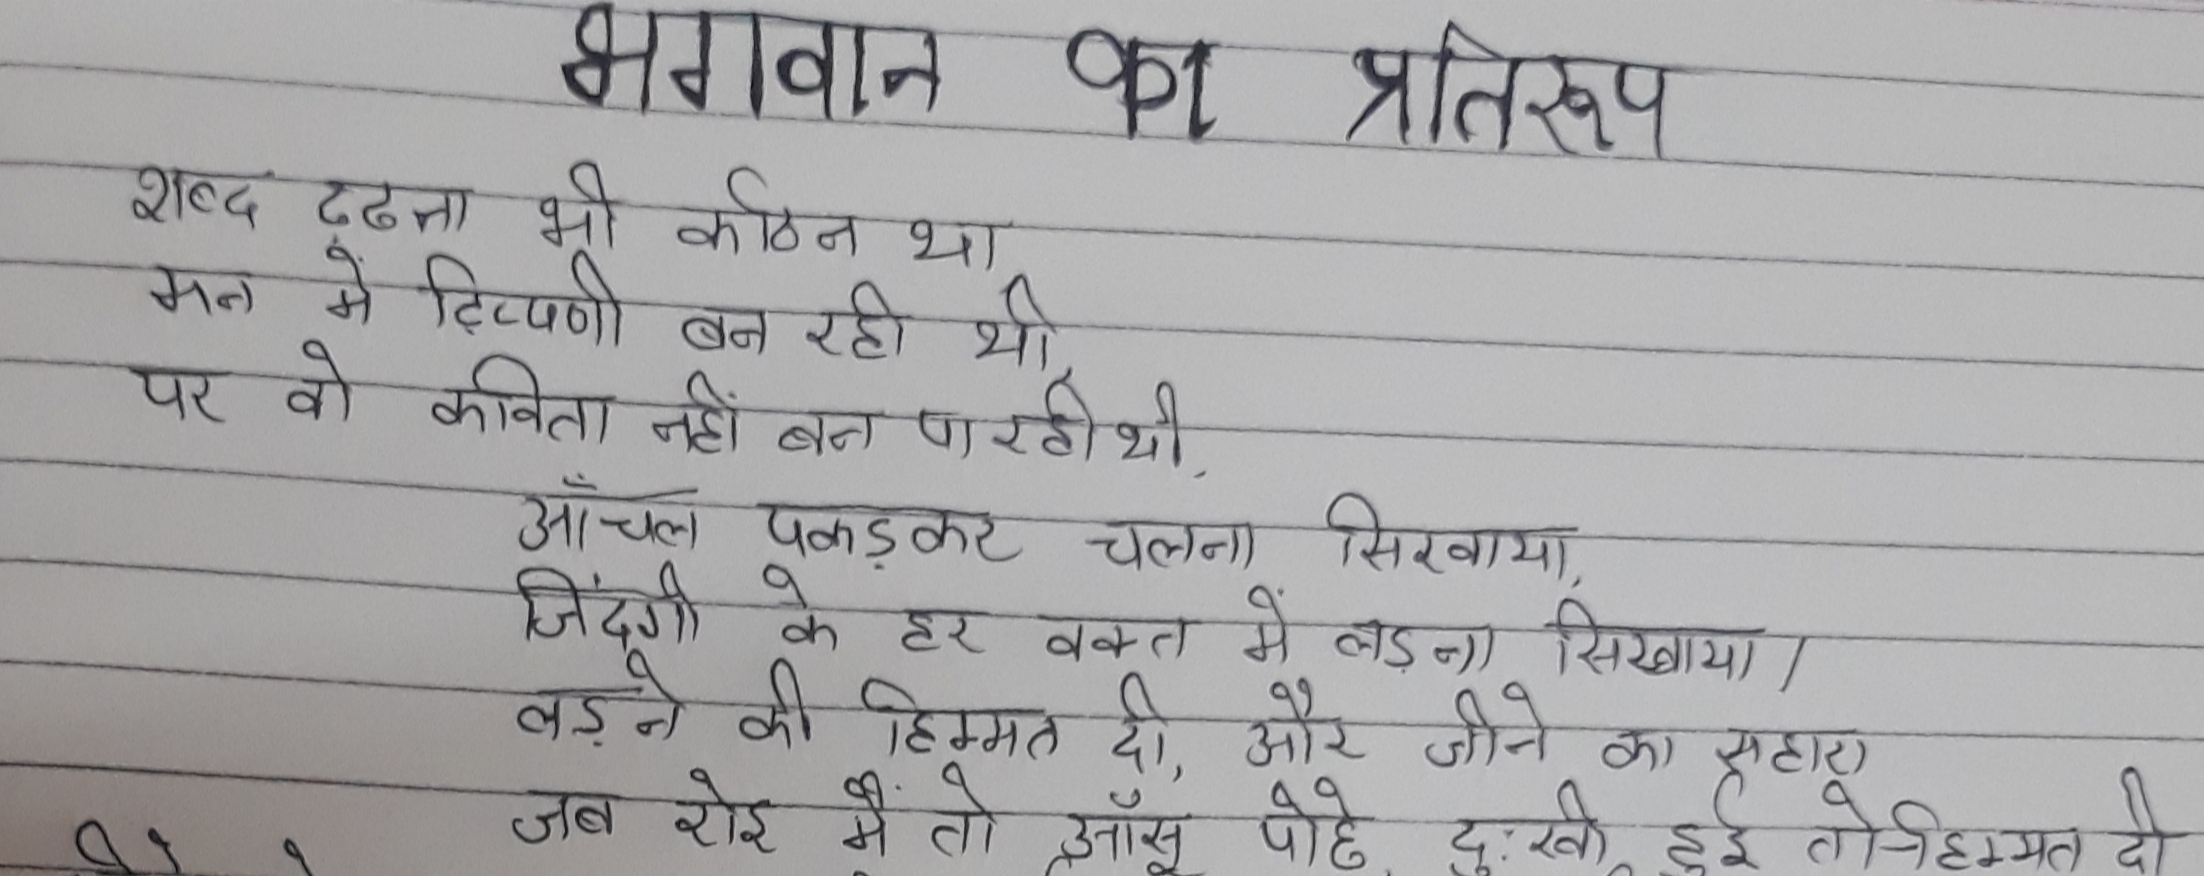 भगवान का प्रतिरूप
शब्द ढूढना भी कठिन था
मन में टिप्पणी बन रही थी,
पर वो कविता नहीं बन पा रही थी,
आँचल पकड़कर चलना सिखाया,
जिंदगी के हर वक्त में लड़ना सिखाया।
लड़ने की हिम्मत दी, और जीने का सहारा
जब रोई मैं तो आँसू पोछे, दुःखी हुई तो हिम्मत दी